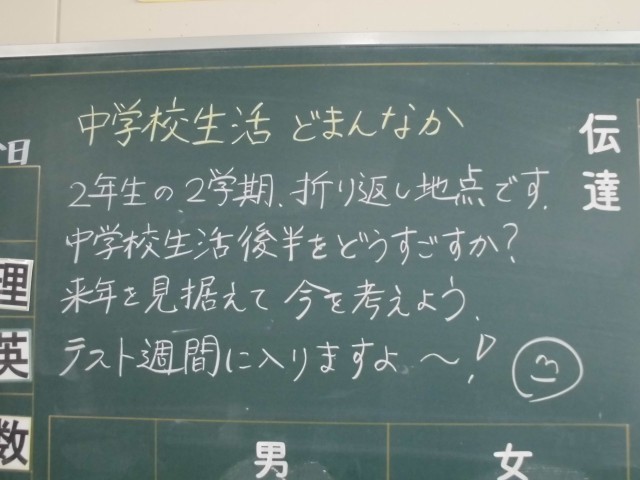 中学校生活 どまんなか
2年生の、2学期、折り返し地点です。
中学校生活後半をどうすごすか?
来年を見据えて 今を考えよう。
テスト週間に入りますよ〜!
伝達
日
理
英
数
男
女